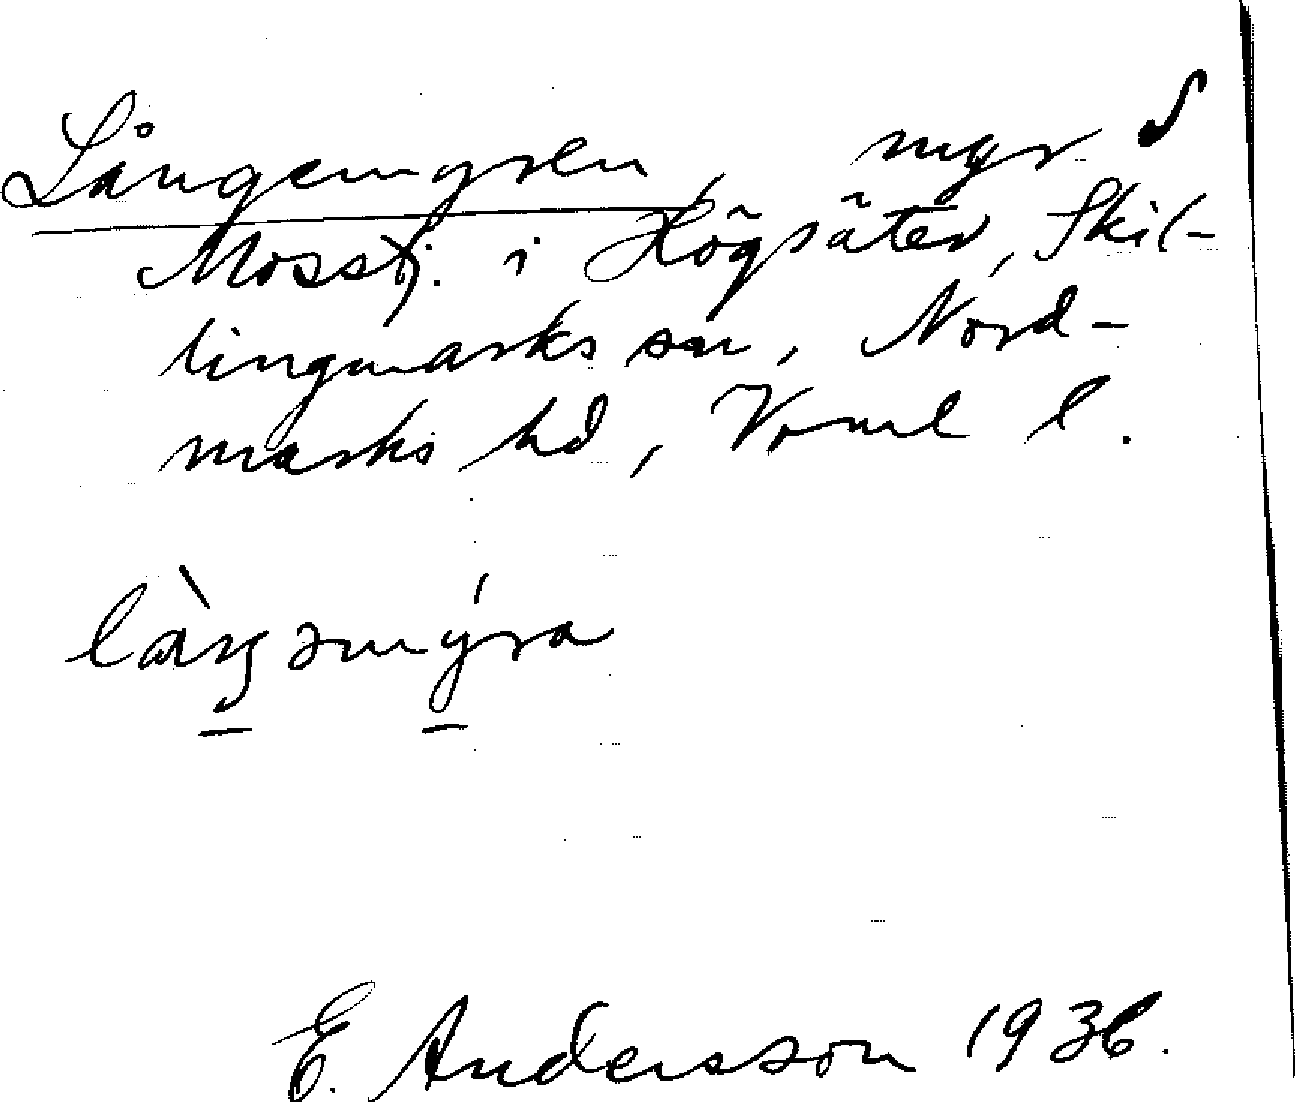 Långemyren, myr S
Mosstj. i Högsäter, Skil-
lingmarks sn, Nord-
marks hd, Vrml l.
làŋəmýra
E. Andersson 1936.